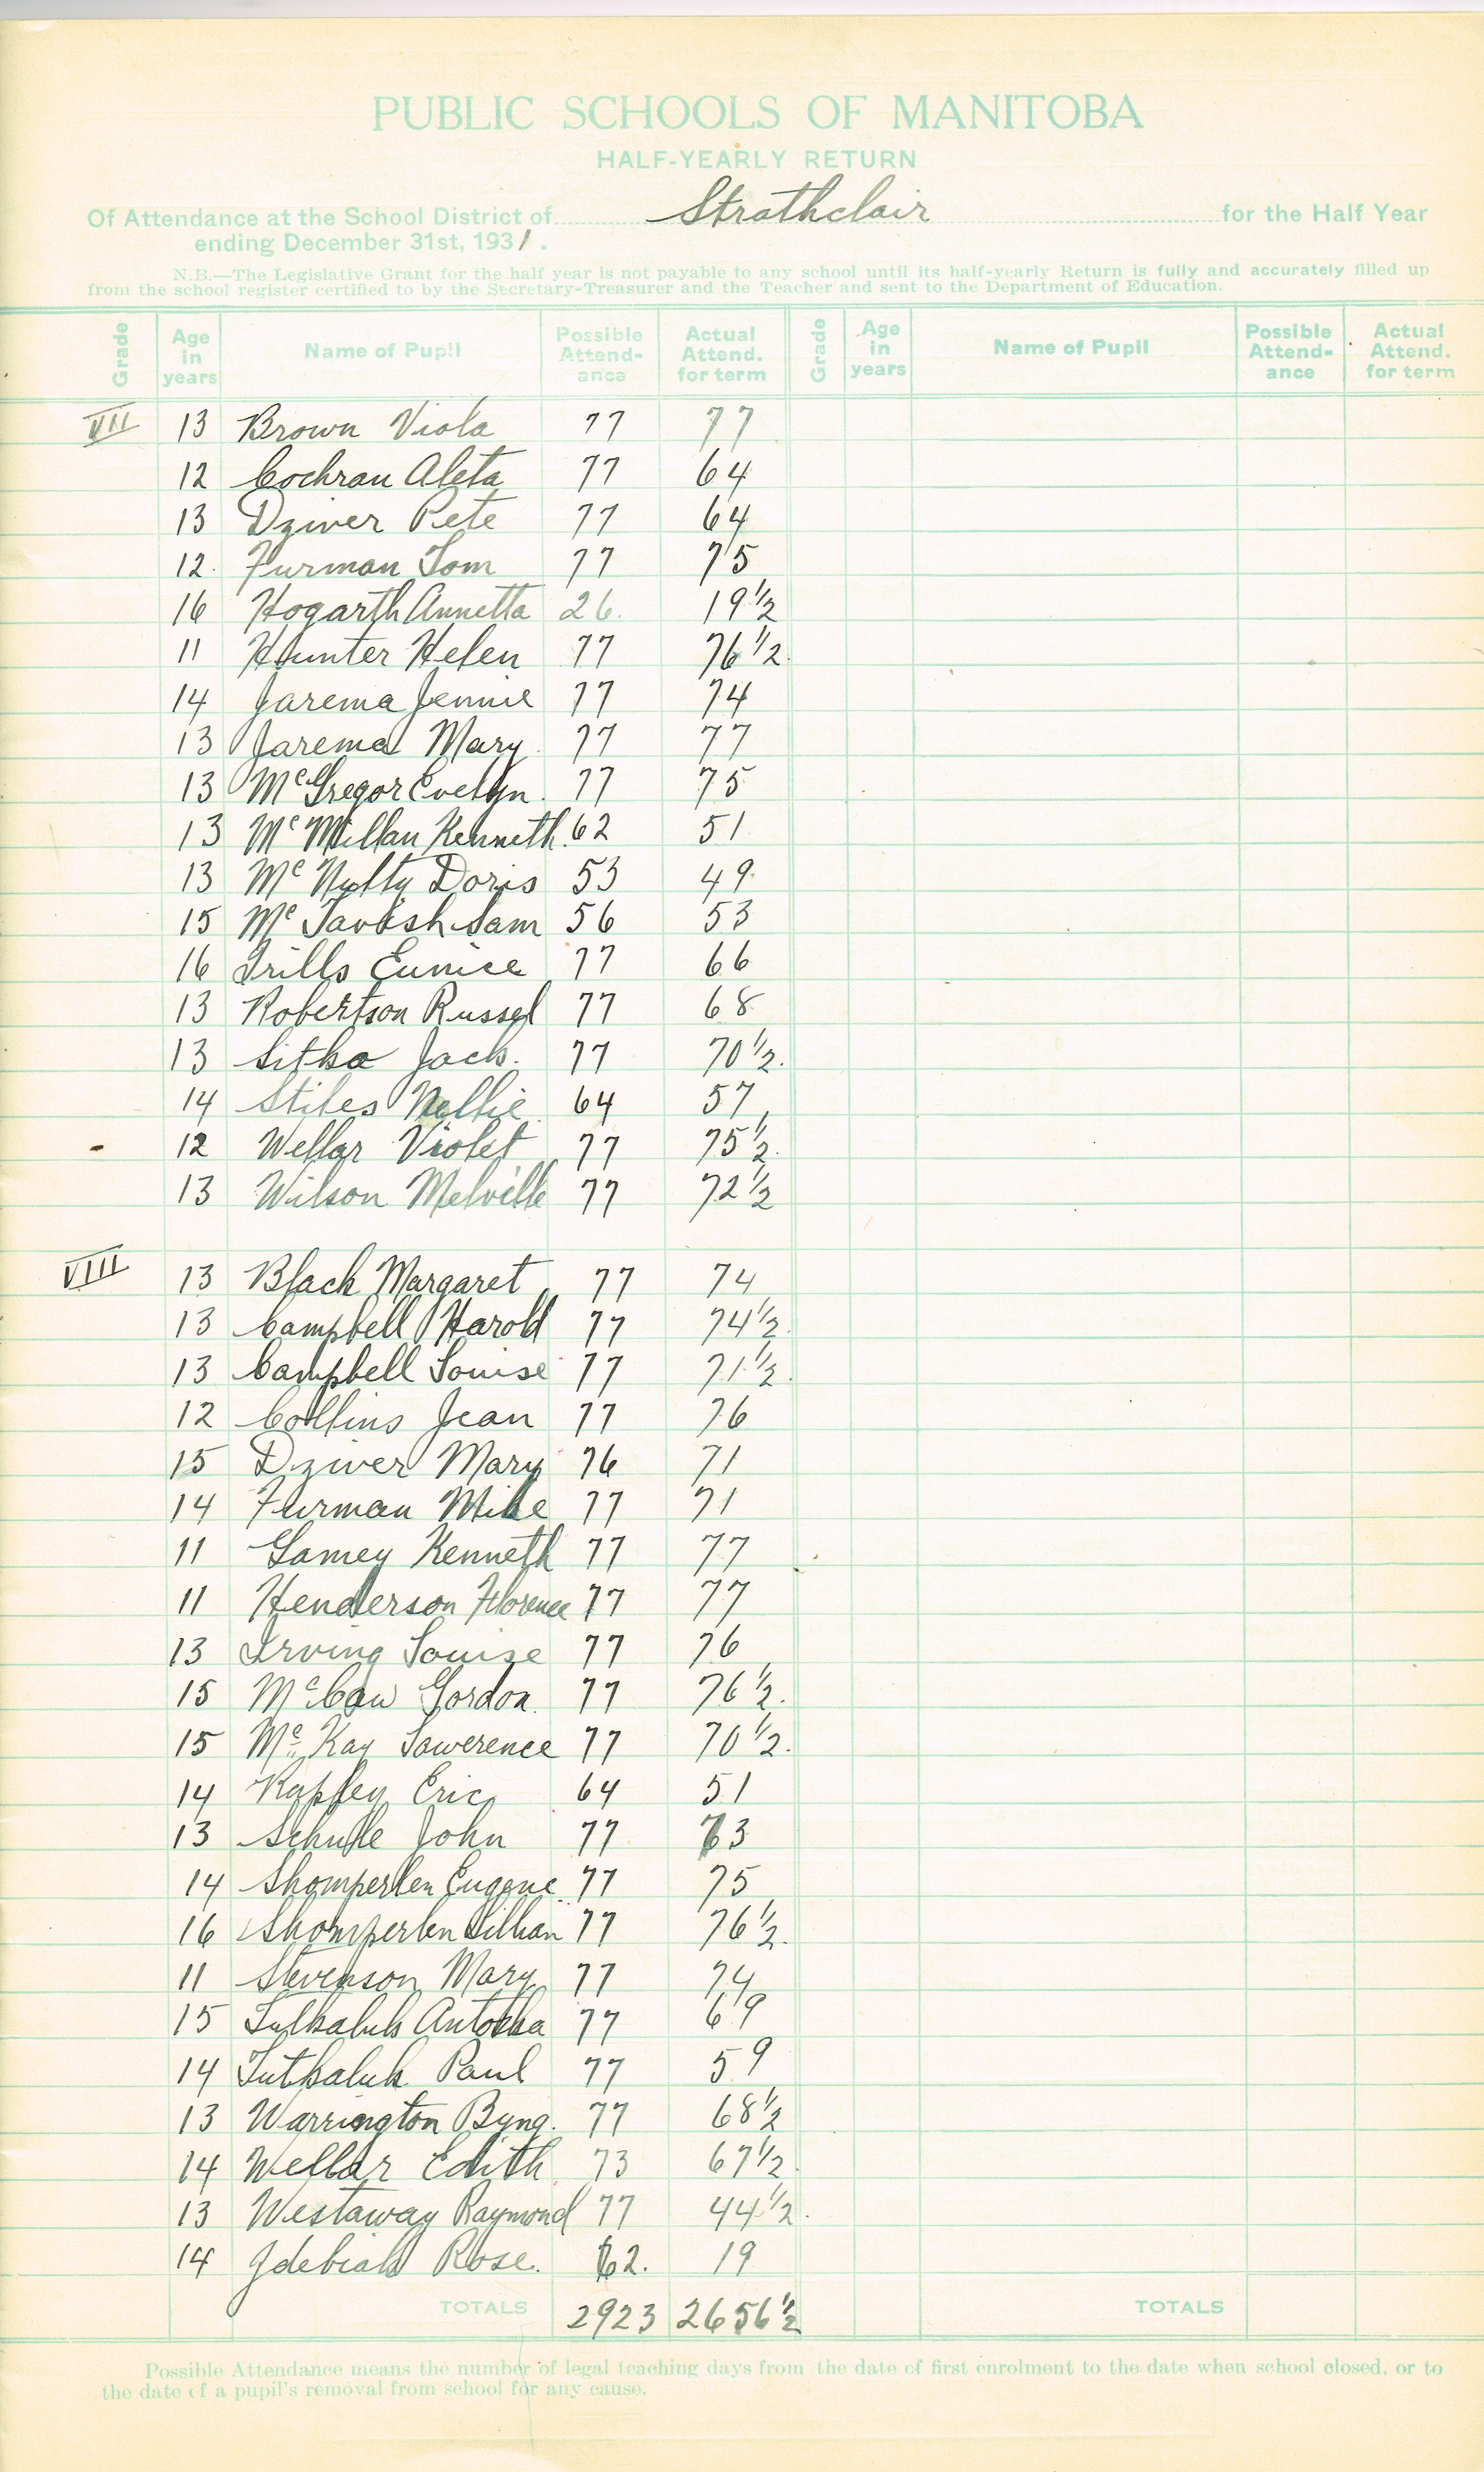 PUBLIC SCHOOLS OF MANITOBA
HALF-YEARLY RETURN
Of Attendance at the School District of Strathclair for the Half Year
ending December 31st, 1931.
N.B.—The Legislative Grant for the half year is not payable to any school until its half-yearly Return is fully and accurately filled up
from the school register certified to by the Secretary-Treasurer and the Teacher and sent to the Department of Education.
Grade Age in years Name of Pupil Possible Attend-ance Actual Attend. for term Grade Age in years Name of Pupil Possible Attend-ance Actual Attend. for term
VII 13 Brown Viola 77 77
12 Cochran Aleta 77 64
13 Dziver Pete 77 64
12. Furman Tom 77 75
16 Hogarth Annetta 26. 19 1/2
11 Hunter Helen 77 76 1/2.
14 Jarema Jennie 77 74
13 Jarema Mary. 77 77
13 McGregor Evelyn. 77 75
13 McMillan Kenneth. 62 51
13 McNulty Doris 53 49
15 McTavish Sam 56 53
16 Trills Eunice 77 66
13 Robertson Russel 77 68
13 Sitka Jack. 77 70 1/2.
14 Stiles Nellie 64 57
12 Wellar Violet 77 75 1/2.
13 Wilson Melville 77 72 1/2
VIII 13 Black Margaret 77 74
13 Campbell Harold 77 74 1/2.
13 Campbell Louise 77 71 1/2.
12 Collins Jean 77 76
15 Dziver Mary 76 71
14 Furman Mike 77 71
11 Gamey Kenneth 77 77
11 Henderson Florence 77 77
13 Irving Louise 77 76
15 McCaw Gordon. 77 76 1/2.
15 McKay Lawerence 77 70 1/2.
14 Eric 64 51
13 John 77 73
14 Shomperlen Eugene. 77 75
16 Shomperlen Lillian 77 76 1/2.
11 Stevenson Mary 77 74
15 77 69
14 Tutkaluk Paul 77 59
13 Warrington Byng. 77 68 1/2
14 Wellar Edith 73 67 1/2.
13 Westaway Raymond 77 44 1/2.
14 Rose. 62. 19
TOTALS 2923 2656 1/2 TOTALS
Possible Attendance means the number of legal teaching days from the date of first enrolment to the date when school closed, or to
the date of a pupil's removal from school for any cause.